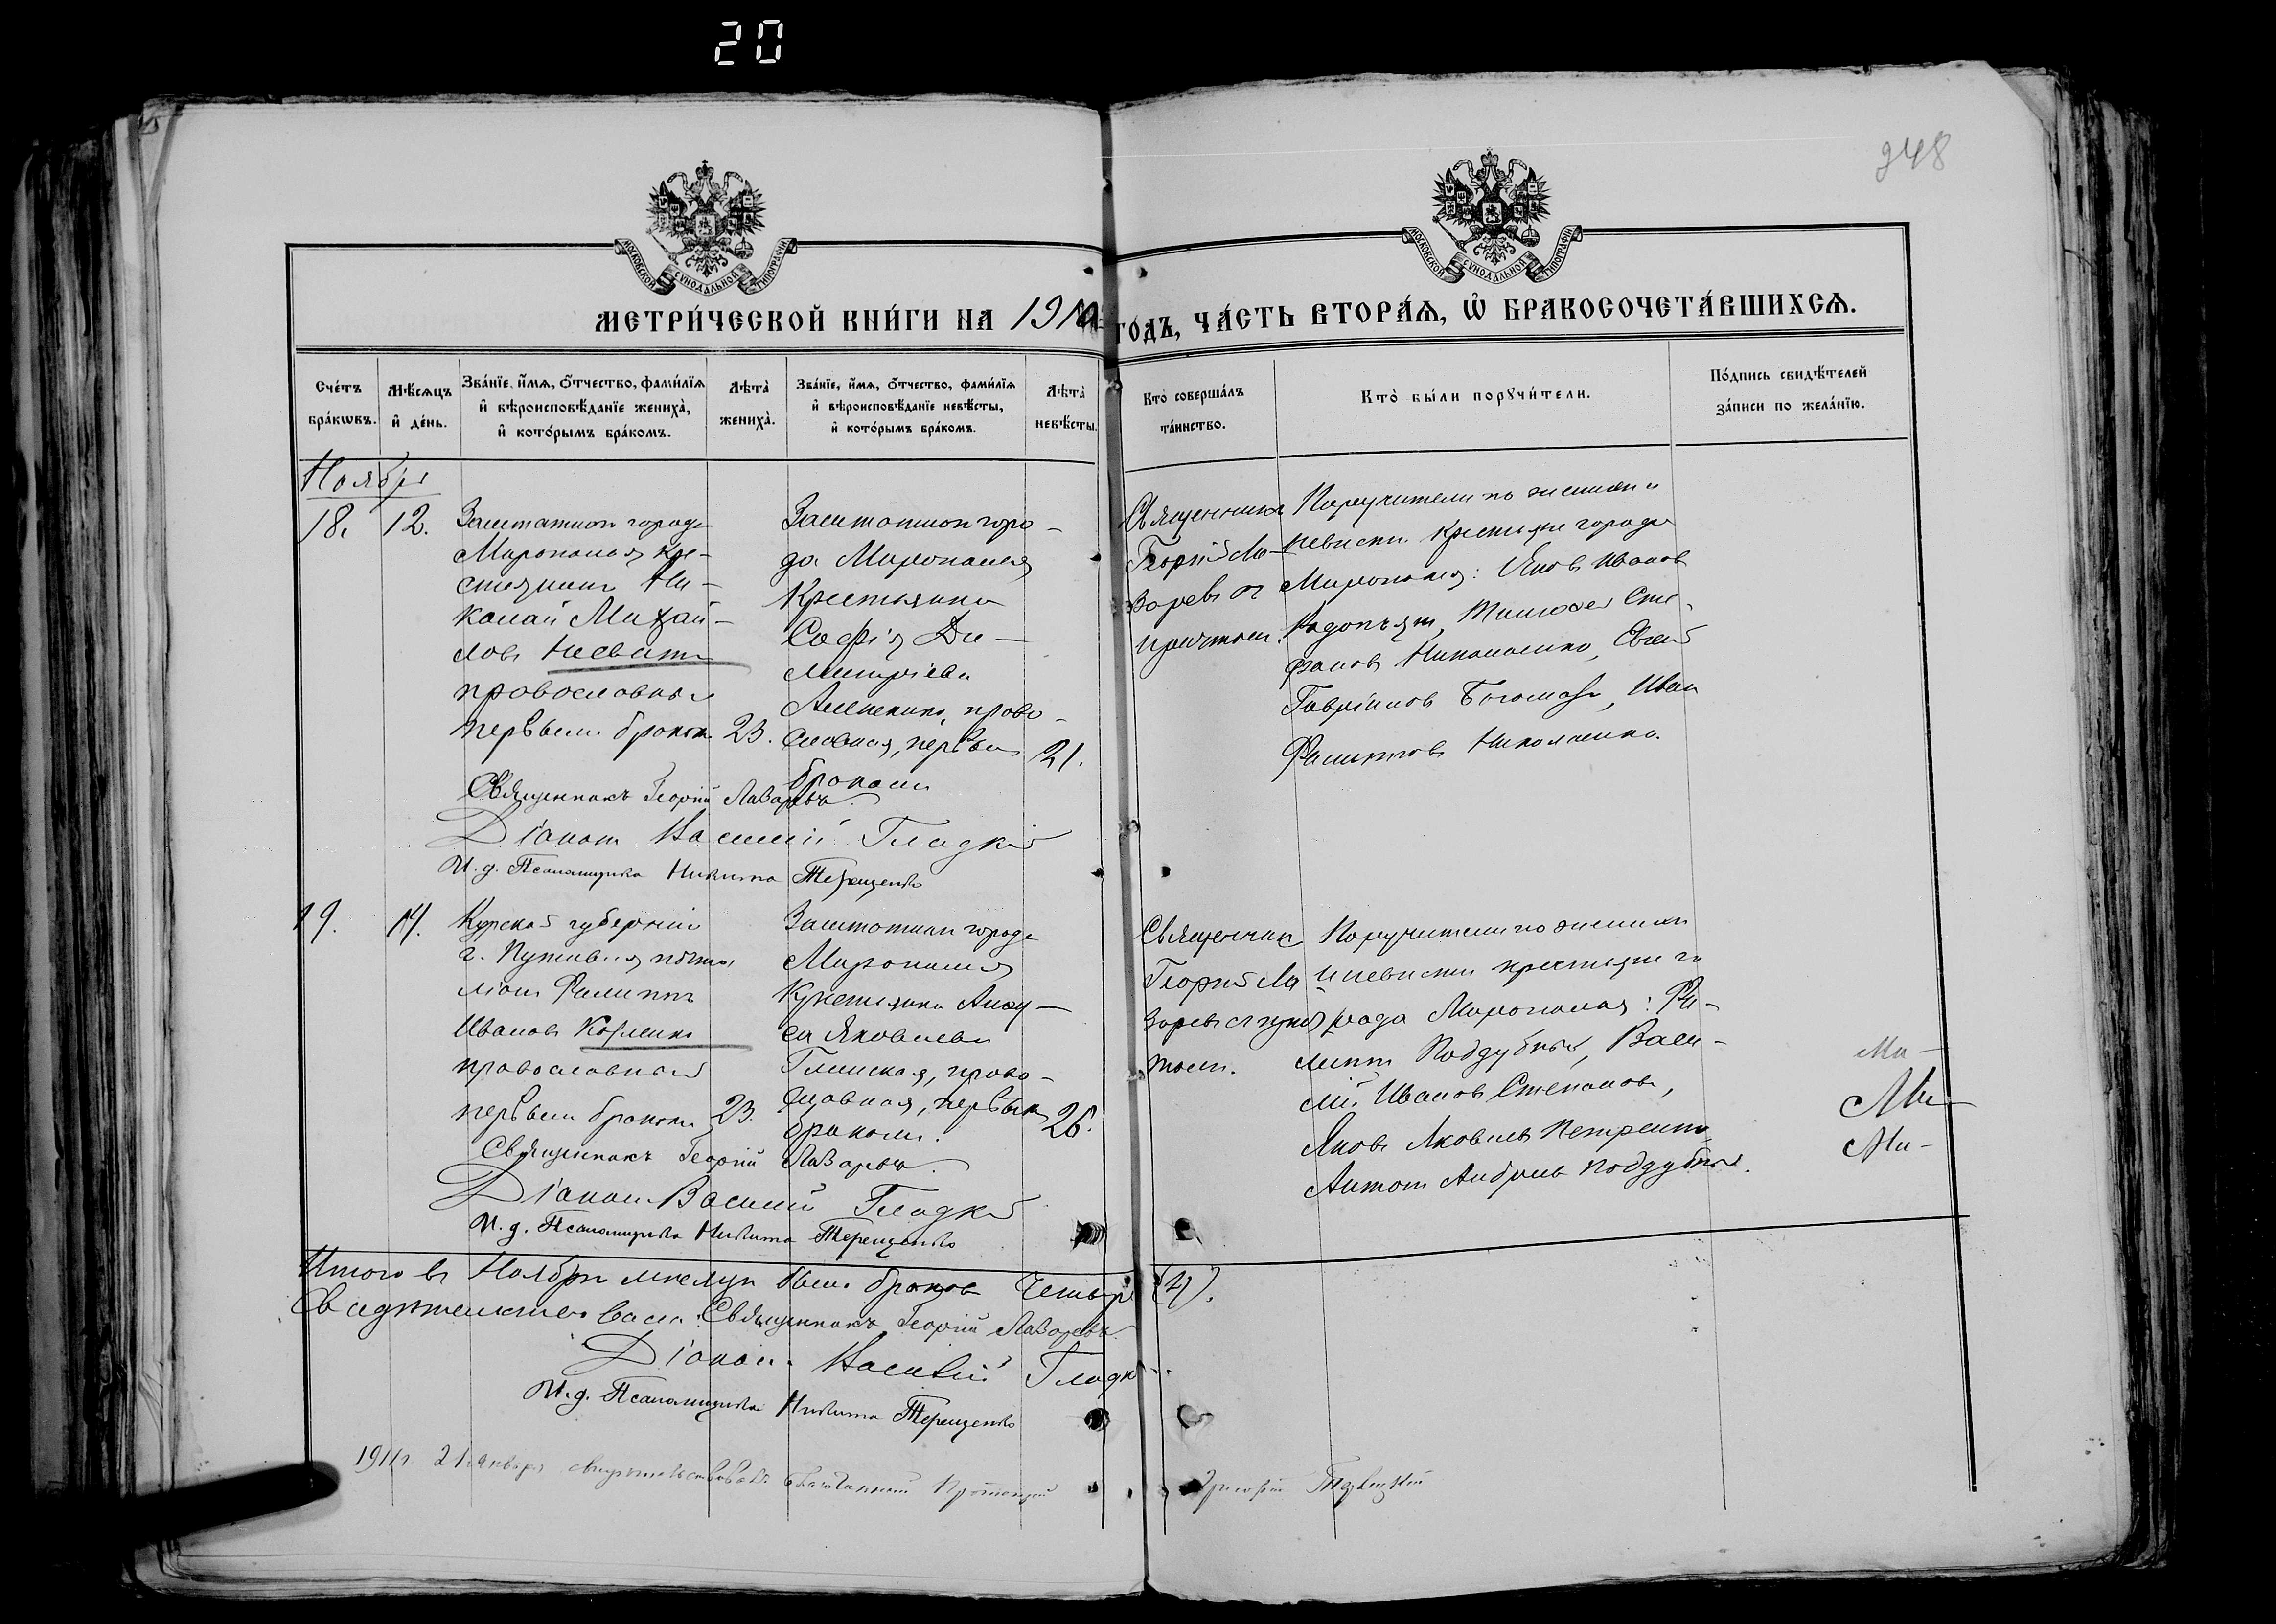 20
248
МОСКОВСКОЙ СѴНОДАЛЬНОЙ ТИПОГРАФІИ
МОСКОВСКОЙ СѴНОДАЛЬНОЙ ТИПОГРАФІИ
МЕТРИ́ЧЕСКОЙ КНИ́ГИ НА 1910 ГОДЪ, ЧА́СТЬ ВТОРА́Ѧ, Ѡ҆ БРАКОСОЧЕТА́ВШИХСѦ.
Сче́тъ бра́кѡвъ.
Мѣ́сѧцъ и҆ де́нь.
Зва́нїе, и҆́мѧ, ѻ҆́тчество, фами́лїѧ
и҆ вѣроисповѣ́данїе жениха̀,
и҆ кото́рымъ бра́комъ.
Лѣта̀ жениха̀.
Зва́нїе, и҆́мѧ, ѻ҆́тчество, фами́лїѧ
и҆ вѣроисповѣ́данїе невѣ́сты,
и҆ кото́рымъ бра́комъ.
Лѣта̀ невѣ́сты.
Кто̀ соверша́лъ та́инство.
Кто̀ бы́ли порꙋчи́тели.
По́дпись свидѣ́телей
за́писи по жела́нїю.
Ноября
18. 12.
Заштатнон города
Мирополья кре-
стьянинъ Ни-
колай Михай-
ловъ
православный
первымъ бракомъ 23.
Заштатнон горо-
да Мирополья
Крестьянка
Софія Ди-
митріева
право-
славная, первым 21.
бракомъ
Священникъ
Георгій Ла-
заревъ съ
причтом.
Поручители по жених и
невѣсти крестьяне города
Мирополья: Яковъ Ивановъ
Сте-
фановъ Николаенко,
Гавріиловъ Богомазъ, Иван
Филипповъ Николаенко.
Священникъ Георгій Лазаревъ
Діаконъ Василій Гладкій
И. д. Псаломщика Никита Терещенко
19. 14.
Курской губерніи
г. Путивля
Филиппъ
Ивановъ Козленко
православный
первым бракомъ 23.
Заштатнон города
Мирополья
Крестьянка
Яковлева
Глинская, право-
славная, первым 26.
бракомъ.
Священник
Георгій Ла
заревъ с прич
том.
Поручители по жених
и невѣсти крестьяне го
рода Мирополья: Фи-
липп Поддубный, Васи-
лій Ивановъ Степановъ,
Яковъ Яковлевъ
Антонъ Поддубный.
Священникъ Георгій Лазаревъ
Діаконъ Василій Гладкій
И. д. Псаломщика Никита Терещенко
Итого въ Ноябрѣ мѣсяцѣ было браковъ четыре (4).
Священникъ Георгій Лазаревъ
Діаконъ Василій Гладкій
И. д. Псаломщика Никита Терещенко
1911 г 21 января свидѣтельствовалъ Благочинный Протоіерей